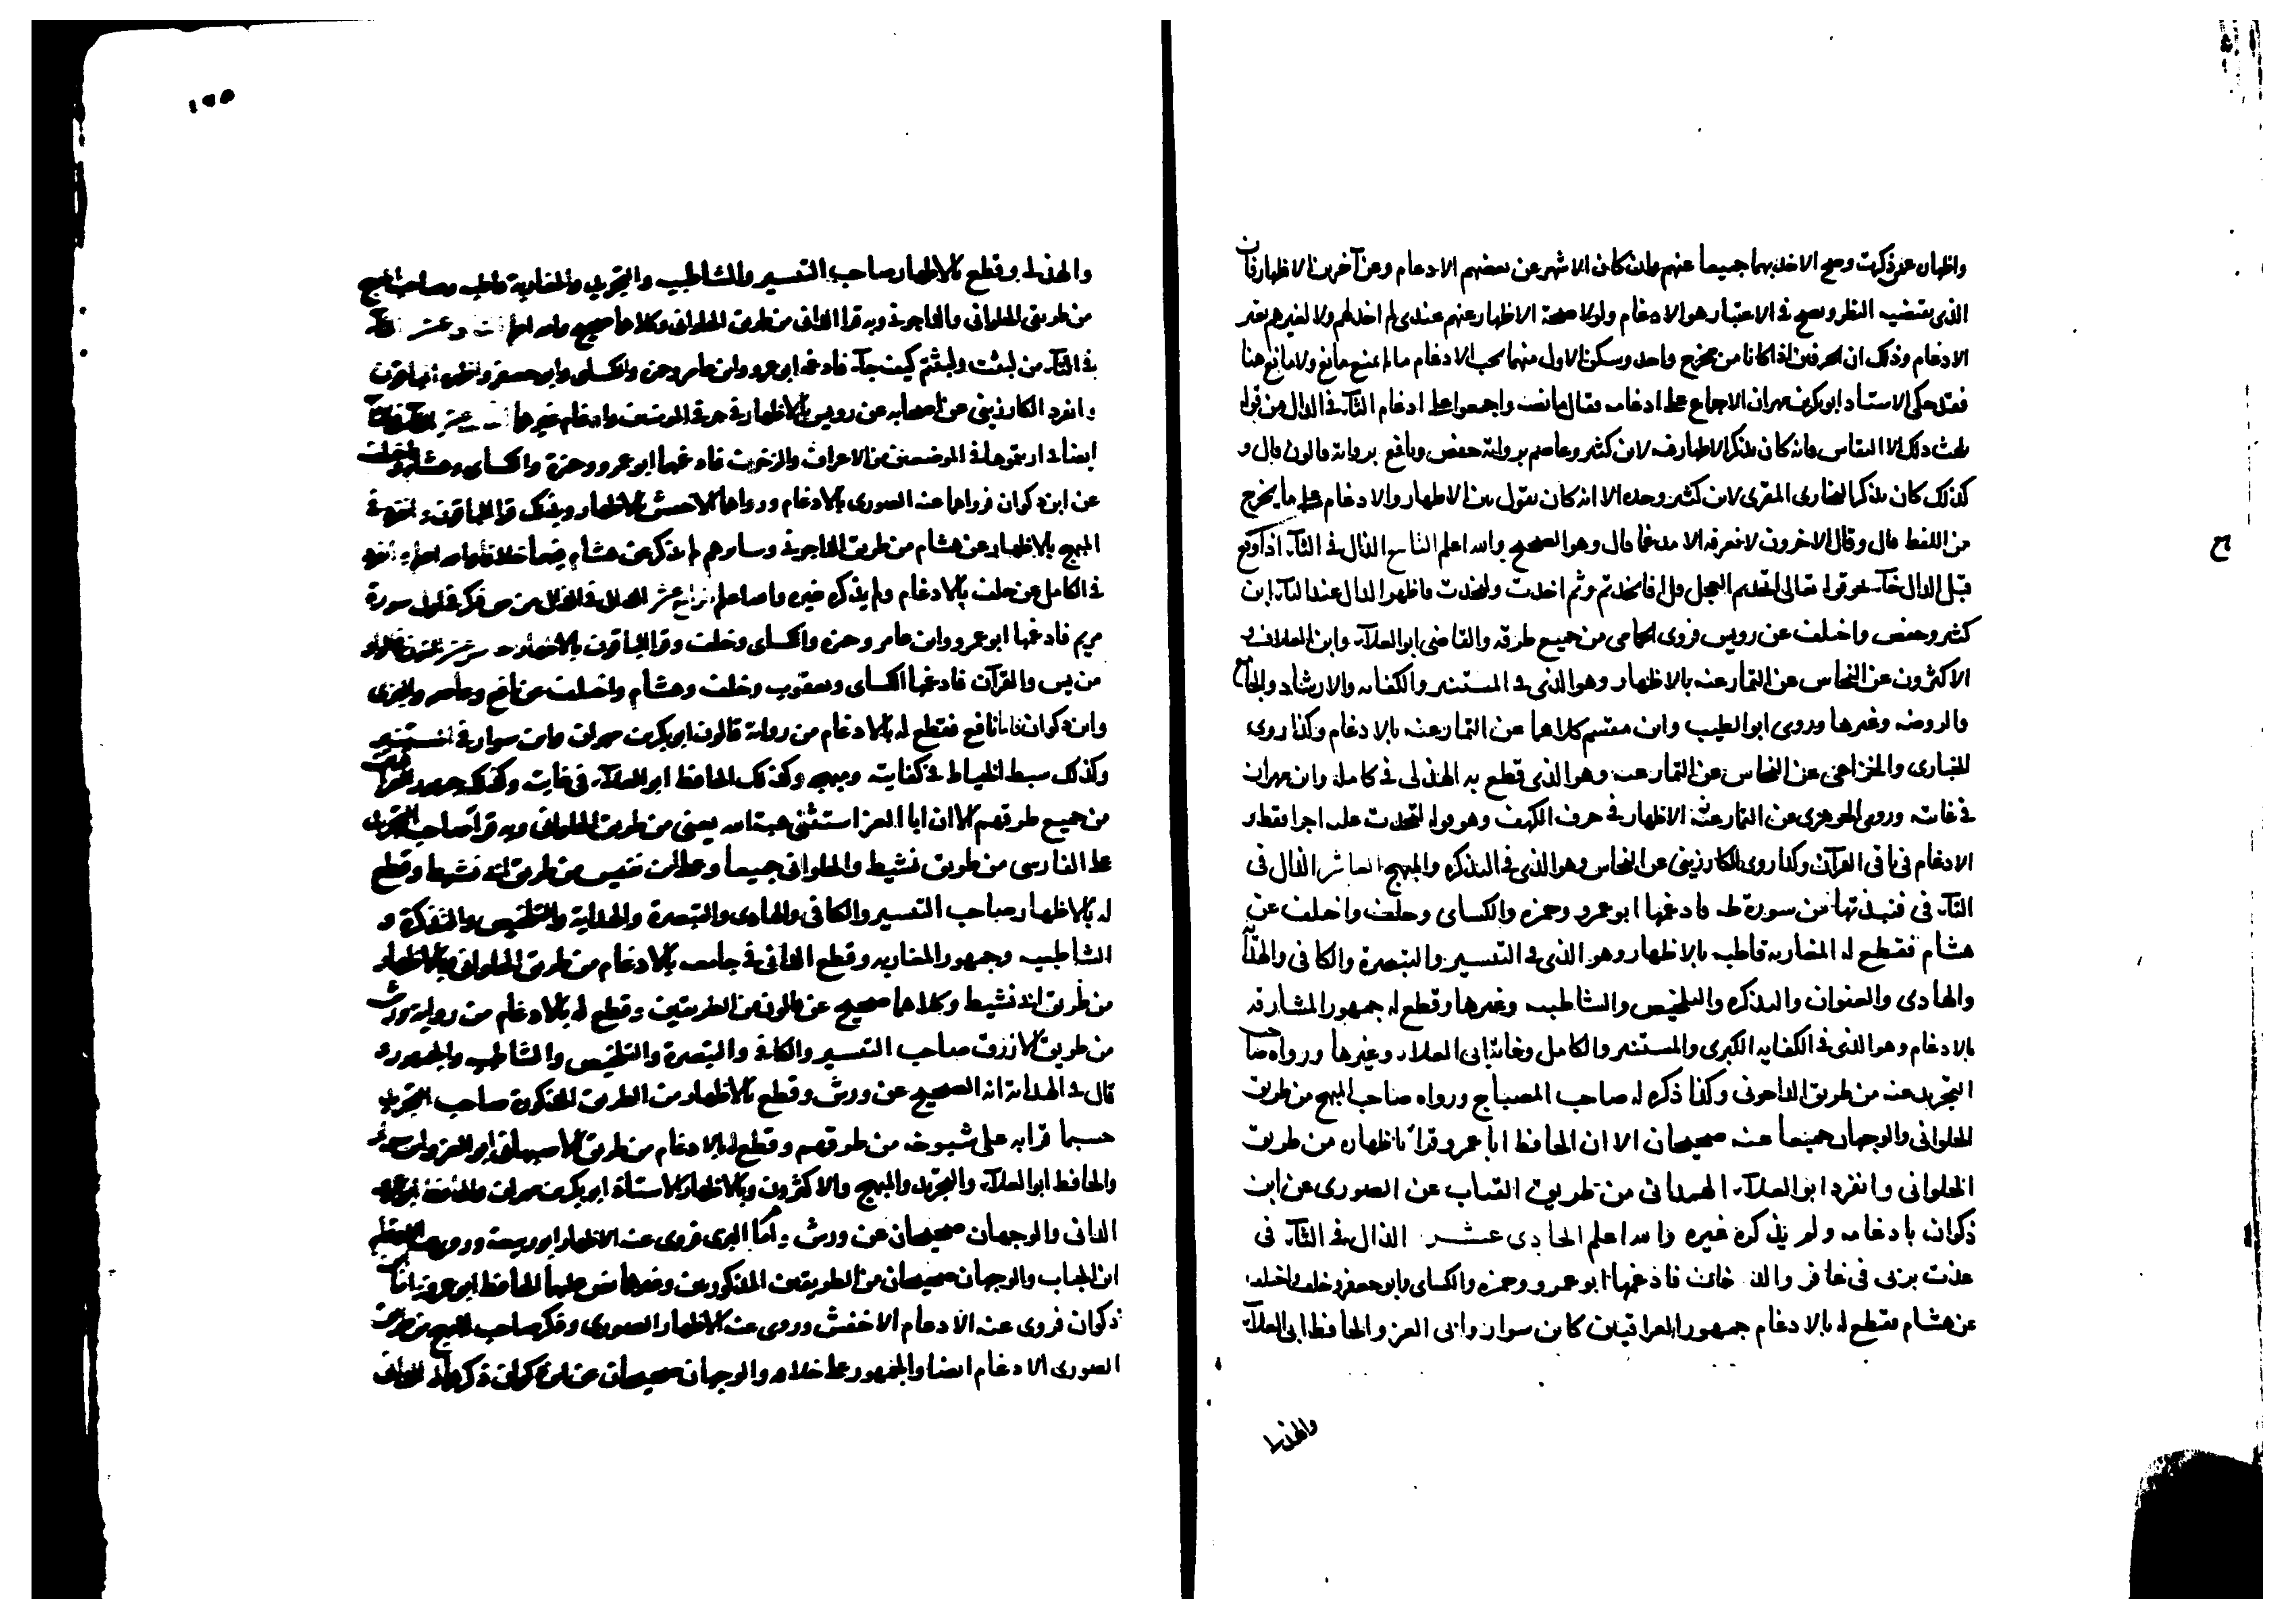 واظهاره عمن ذكرت وصح الاخذ بهما جميعا عنهم وان كان الاشهر عن بعضهم الادغام وعن آخرين الاظهار فان
الذى يقتضيه النظر ويصح فى الاعتبار هو الادغام ولولا صحة الاظهار عنهم عندى لم اخذ لهم ولا لغيرهم بغير
الادغام وذلك ان الحرفين اذا كانا من مخرج واحد وسكن الاول منهما يجب الادغام ما لم يمنع مانع ولا مانع هنا
فقد حكى الاستاد ابو بكر بن مهران الاجماع على ادغامه فقال ما نصه واجمعوا على ادغام الثآء فى الذال من قوله
يلهث ذلك الا النقاش فانه كان يذكر الاظهار فيه لابن كثير وعاصم برواية حفص ونافع برواية قالون قال و
كذلك كان يذكر البخارى المقرى لابن كثير وحده الا انه كان يقول بين الاظهار والادغام على ما يخرج
من اللفظ قال وقال الاخرون لا نعرفه الا مدغما قال وهو الصحيح والله اعلم التاسع الذال فى التآء اذا وقع
قبل الذال خآء نحو قوله تعالى اتخذتم العجل وقل افاتخذتم وثم اخذت ولتخذت فاظهر الذال عند التآء ابن
كثير وحفص واختلف عن رويس فروى الحمامى من جميع طرقه والقاضى ابو العلآء وابن العلاف و
الاكثرون عن النخاس عن التمار عنه بالاظهار وهو الذى فى المستنير والكفايه والارشاد والجامع
والروضه وغيرها وروى ابو الطيب وابن مقسم كلاهما عن التمار عنه بالادغام وكذا روى
الخبازى والخزاعى عن النخاس عن التمار عنه وهو الذى قطع به الهذلى فى كامله وابن مهران
فى غايته وروى الجوهرى عن التمار عنه الاظهار فى حرف الكهف وهو قوله لتخذت عليه اجرا فقط و
الادغام فى باقى القرآن وكذا روى الكارزينى عن النخاس وهو الذى فى التذكره والمبهج العاشر الذال فى
التآء فى فنبذتها من سورة طه فادغمها ابو عمرو وحمزه والكساى وخلف واختلف عن
هشام فقطع له المغاربه قاطبه بالاظهار وهو الذى فى التيسير والتبصرة والكافى والهداية
والهادى والعنوان والتذكره والتلخيص والشاطبيه وغيرها وقطع له جمهور المشارقه
بالادغام وهو الذى فى الكفايه الكبرى والمستنير والكامل وغاية ابى العلاء وغيرها ورواه صاحب
التجريد عنه من طريق الداجونى وكذا ذكره له صاحب المصباح ورواه صاحب المبهج من طريق
الحلوانى والوجهان جميعا عنه صحيحان الا ان الحافظ ابا عمرو قرأ باظهاره من طريق
الحلوانى وانفرد ابو العلآء الهمدانى من طريق القباب عن الصورى عن ابن
ذكوان بادغامه ولم يذكره غيره والله اعلم الحادى عشر الذال فى التآء فى
عذت بربى فى غافر والدخان فادغمها ابو عمرو وحمزه والكساى وابو جعفر وخلف واختلف
عن هشام فقطع له بالادغام جمهور العراقيين كابن سوار وابى العز والحافظ ابى العلآء
والهذلى
١٩٥
والهذلى وقطع بالاظهار صاحب التيسير والشاطبيه والتجريد والمغاربة قاطبه وصاحب المبهج
من طريقى الحلوانى والداجونى وبه قرأ الدانى من طريق الحلوانى وكلاهما صحيح والله اعلم
فى التآء من لبثت ولبثتم كيف جآء فادغمه ابو عمرو وابن عامر وحمزه والكساى وابو جعفر واظهره الباقون
وانفرد الكارزينى عن اصحابه عن رويس بالاظهار فى حرفى المؤمنين وادغام غيرهما
ايضا فى اورثتموها فى الموضعين من الاعراف والزخرف فادغمها ابو عمرو وحمزة والكساى وهشام واختلف
عن ابن ذكوان فرواها عنه الصورى بالادغام ورواها الاخفش بالاظهار وبذلك قرأ الباقون وانفرد فى
المبهج بالاظهار عن هشام من طريق الداجونى وسايرهم لم يذكر عن هشام فيها خلافا والله اعلم وانفرد
فى الكامل عن خلف بالادغام ولم يذكره غيره والله اعلم الرابع عشر الدال فى الذال من ص ذكر فى اول سورة
مريم فادغمها ابو عمرو وابن عامر وحمزه والكساى وخلف وقرأ الباقون بالاظهار
من يس والقرآن فادغمها الكساى ويعقوب وخلف وهشام واختلف عن نافع وعاصم والبزى
وابن ذكوان فاما نافع فقطع له بالادغام من رواية قالون ابو بكر بن مهران وابن سوار فى المستنير
وكذلك سبط الخياط فى كفايته ومبهجه وكذلك الحافظ ابو العلآء فى غايته وكذلك جمهور العراقيين
من جميع طرقهم الا ان ابا العز استثنى هبة الله يعنى من طريق الحلوانى وبه قرأ صاحب التجريد
على الفارسى من طريق نشيط والحلوانى جميعا وعلى ابن نفيس من طريق ابى نشيط وقطع
له بالاظهار صاحب التيسير والكافى والهادى والتبصرة والهداية والتلخيص والتذكرة و
الشاطبيه وجمهور المغاربه وقطع الدانى فى جامعه بالادغام من طريق الحلوانى وبالاظهار
من طريق ابى نشيط وكلاهما صحيح عن قالون من الطريقين وقطع له بالادغام من رواية ورش
من طريق الازرق صاحب التيسير والكافى والتبصرة والتلخيص والشاطبيه والجمهور و
قال فى الهداية انه الصحيح عن ورش وقطع بالاظهار من الطريق المذكورة صاحب التجريد
حسبما قرا به على شيوخه من طرقهم وقطع له بالادغام من طريق الاصبهانى ابو العز وابن سوار
والحافظ ابو العلآء والتجريد والمبهج والاكثرون وبالاظهار الاستاذ ابو بكر بن مهران والحافظ ابو عمرو
الدانى والوجهان صحيحان عن ورش واما البزى فروى عنه الاظهار ابو ربيعة وروى عنه الادغام
ابن الحباب والوجهان صحيحان من الطريقين المذكورين وغيرهما نص عليهما الحافظ ابو عمرو واما ابن
ذكوان فروى عنه الادغام الاخفش وروى عنه الاظهار الصورى وذكر صاحب المبهج من طريق
الصورى الادغام ايضا والجمهور على خلافه والوجهان صحيحان عن ابن ذكوان ذكرهما الدانى